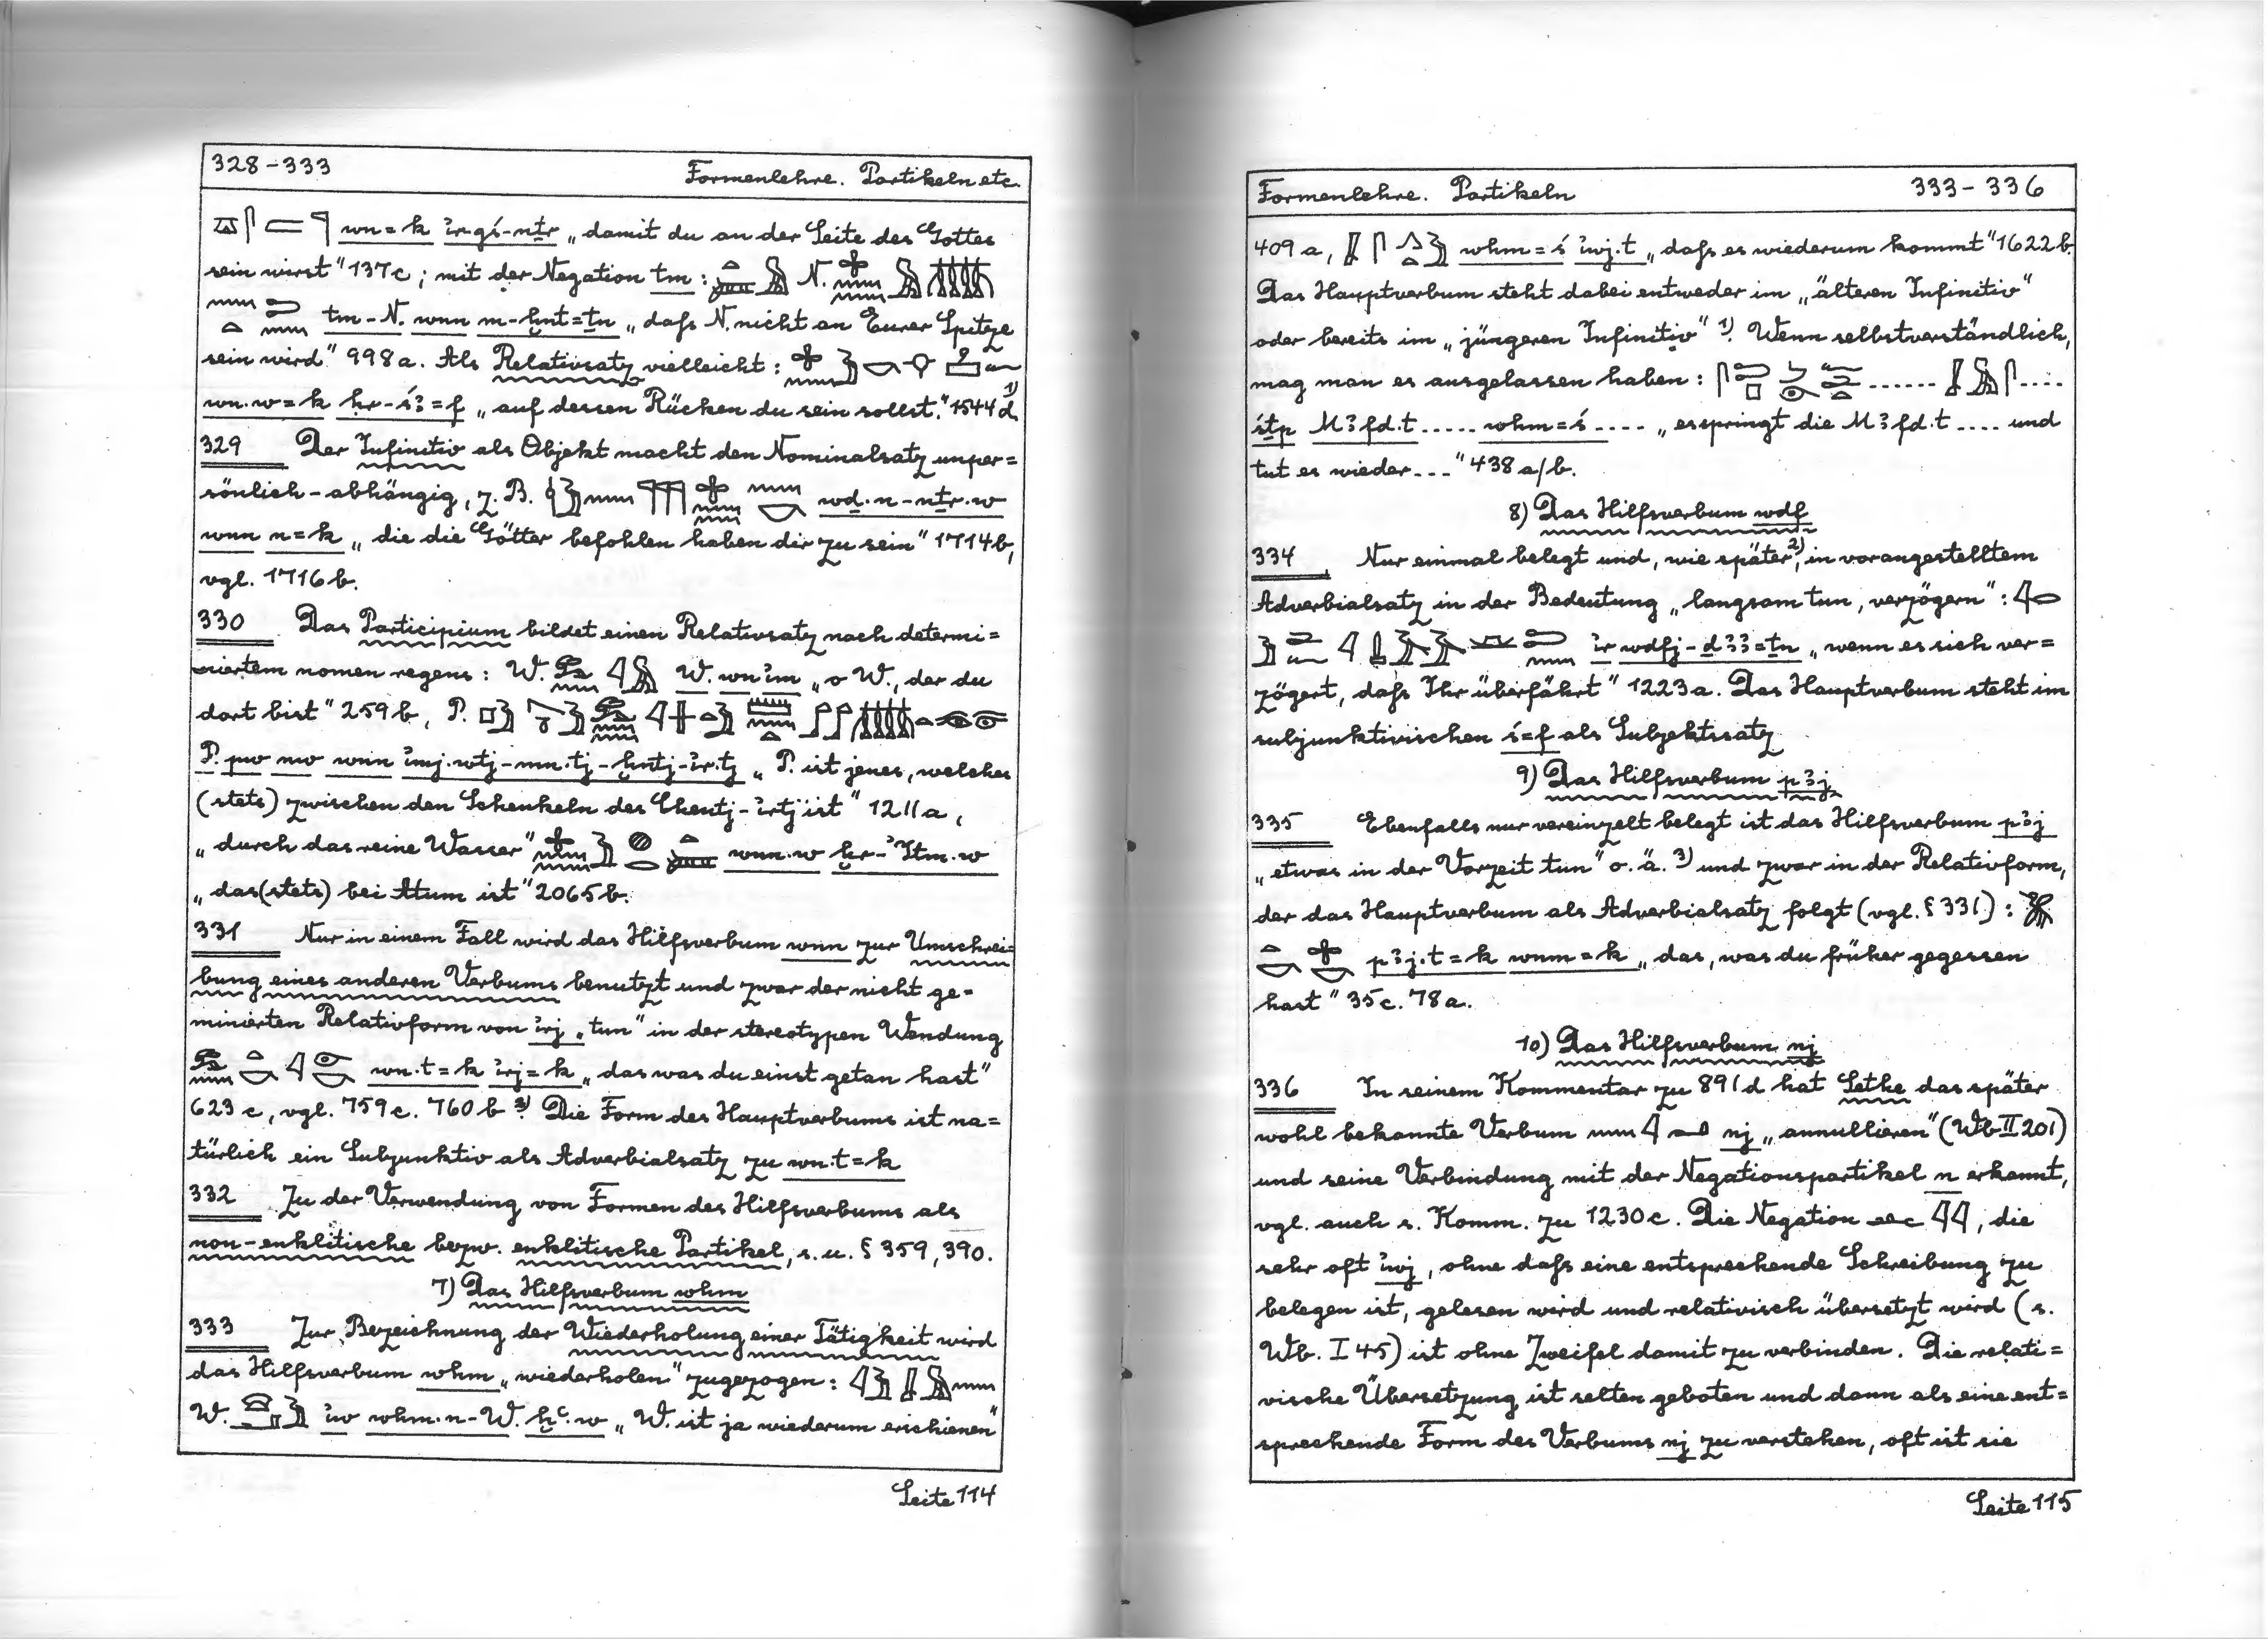 328-333 Formenlehre. Partikeln etc.
wn=k ir-gś-nṯr „damit du an der Seite des Gottes
sein wirst" 137c; mit der Negation tm: N.
tm-N. wnn m-ḫnt=ṯn „daß N. nicht an Eurer Spitze
sein wird" 998a. Als Relativsatz vielleicht:
wn.w=k ḥr-śꜣ=f „auf dessen Rücken du sein sollst." 1544d 1)
329 Der Infinitiv als Objekt macht den Nominalsatz unper=
sönlich-abhängig, z.B. wḏ.n-nṯr.w
wnn n=k „die die Götter befohlen haben dir zu sein" 1714b,
vgl. 1716b.
330 Das Participium bildet einen Relativsatz nach determi=
niertem nomen regens: W. W. wn im „o W., der du
dort bist" 259b, P.
P. pw nw wnn imj.wtj-mn.tj-ḫntj-ir.tj „P. ist jenes, welches
(stets) zwischen den Schenkeln des Chentj-irtj ist" 1211a,
„durch das reine Wasser" wnn.w ḫr-Itm.w
„das (stets) bei Atum ist" 2065b.
331 Nur in einem Fall wird das Hilfsverbum wnn zur Umschrei=
bung eines anderen Verbums benutzt und zwar der nicht ge=
minierten Relativform von irj „tun" in der stereotypen Wendung
wn.t=k irj=k „das was du einst getan hast"
623c, vgl. 759c. 760b 3) Die Form des Hauptverbums ist na=
türlich ein Subjunktiv als Adverbialsatz zu wn.t=k
332 Zu der Verwendung von Formen des Hilfsverbums als
non-enklitische bezw. enklitische Partikel, s.u. § 359, 390.
7) Das Hilfsverbum wḥm
333 Zur Bezeichnung der Wiederholung einer Tätigkeit wird
das Hilfsverbum wḥm „wiederholen" zugezogen:
W. iw wḥm.n-W. ḫꜥ.w „W. ist ja wiederum erschienen"
Seite 114
Formenlehre. Partikeln 333-336
409a, wḥm=ś iwj.t „daß es wiederum kommt" 1622b.
Das Hauptverbum steht dabei entweder im „älteren Infinitiv"
oder bereits im „jüngeren Infinitiv" 1). Wenn selbstverständlich,
mag man es ausgelassen haben: ...... ....
śṯp Mꜣfd.t ..... wḥm=ś .... „es springt die Mꜣfd.t .... und
tut es wieder..." 438a/b.
8) Das Hilfsverbum wdf
334 Nur einmal belegt und, wie später 2), in vorangestelltem
Adverbialsatz in der Bedeutung „langsam tun, verzögern":
ir wdfj-ḏꜣꜣ=ṯn „wenn es sich ver=
zögert, daß Ihr überfährt" 1223a. Das Hauptverbum steht im
subjunktivischen ś=f als Subjektssatz
9) Das Hilfsverbum pꜣj
335 Ebenfalls nur vereinzelt belegt ist das Hilfsverbum pꜣj
„etwas in der Vorzeit tun" o.ä. 3) und zwar in der Relativform,
der das Hauptverbum als Adverbialsatz folgt (vgl. § 331):
pꜣj.t=k wnm=k „das, was du früher gegessen
hast" 35c. 78a.
10) Das Hilfsverbum nj
336 In seinem Kommentar zu 891d hat Sethe das später
wohl bekannte Verbum nj „annullieren" (Wb II 201)
und seine Verbindung mit der Negationspartikel n erkannt,
vgl. auch s. Komm. zu 1230c. Die Negation , die
sehr oft iwj, ohne daß eine entsprechende Schreibung zu
belegen ist, gelesen wird und relativisch übersetzt wird (s.
Wb. I 45) ist ohne Zweifel damit zu verbinden. Die relati=
vische Übersetzung ist selten geboten und dann als eine ent=
sprechende Form des Verbums nj zu verstehen, oft ist sie
Seite 115